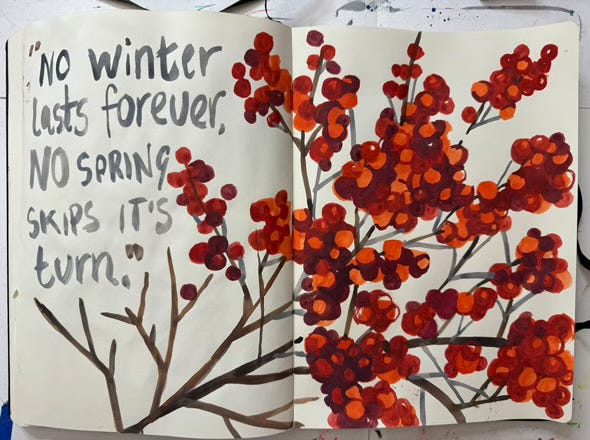 "NO winter
lasts forever,
NO SPRING
SKIPS IT'S
turn."